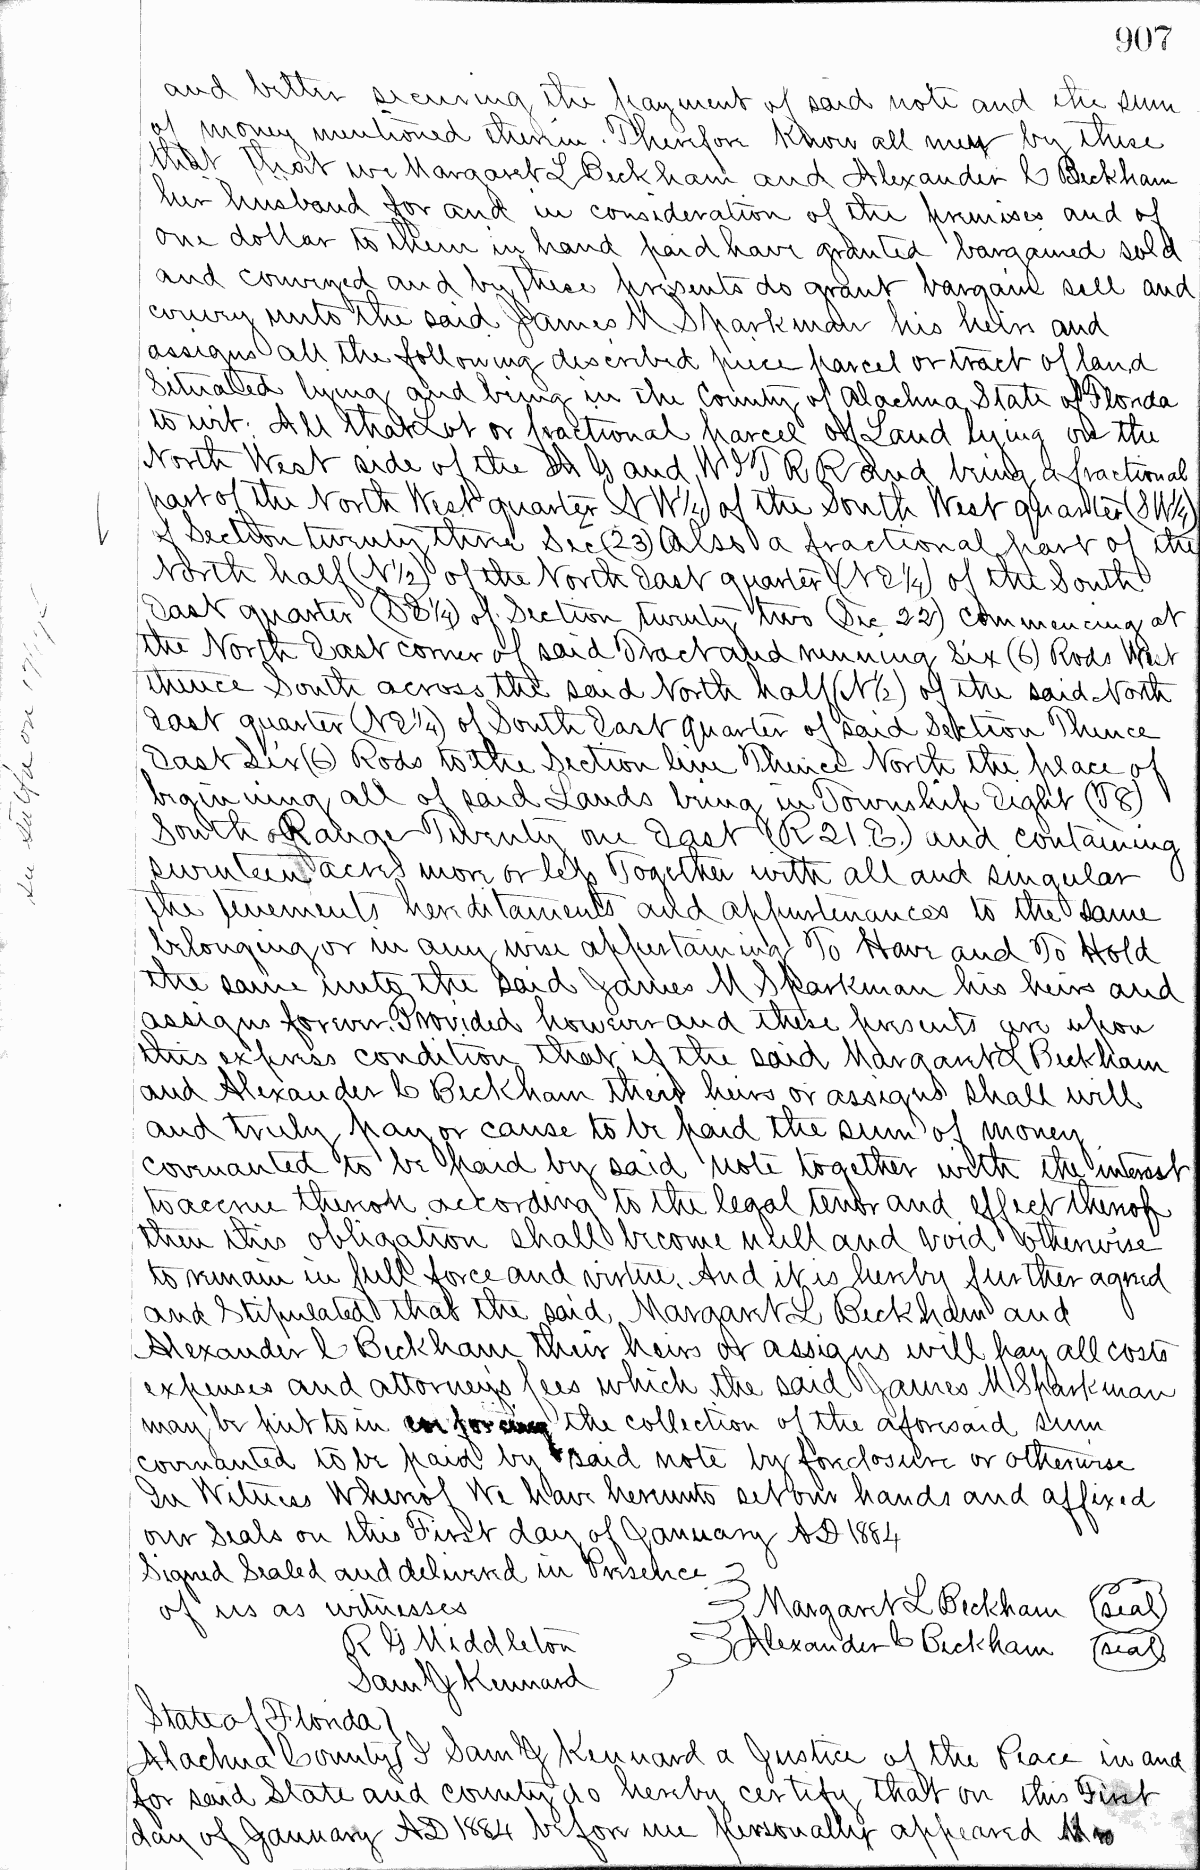 907
and better securing the payment of said note and the sum
of money mentioned therein. Therefore Know all men by these
that that we Margaret L Beckham and Alexander C Beckham
her husband for and in consideration of the premises and of
one dollar to them in hand paid have granted bargained sold
and conveyed and by these presents do grant bargain sell and
convey unto the said James M Sparkman his heirs and
assigns all the following described piece parcel or tract of land
Situated lying and being in the County of Alachua State of Florida
to wit: All that Lot or fractional parcel of Land lying on the
North West side of the and W I T R R and being a fractional
part of the North West quarter (N W 1/4) of the South West quarter (SW 1/4)
of Section twenty three Sec (23) Also a fractional part of the
North half (N 1/2) of the North East quarter (N E 1/4) of the South
East quarter (S E 1/4) of Section twenty two (Sec 22) commencing at
the North East corner of said Tract and running Six (6) Rods West
thence South across the said North half (N 1/2) of the said North
East quarter (N E 1/4) of South East quarter of said Section Thence
East Six (6) Rods to the Section line Thence North the place of
beginning all of said Lands being in Township Eight (T 8)
South & Range Twenty one East (R 21 E.) and containing
seventeen acres more or less Together with all and singular
the tenements hereditaments and appurtenances to the same
belonging or in any wise appertaining To Have and To Hold
the same unto the said James M Sparkman his heirs and
assigns forever. Provided however and these presents are upon
this express condition that if the said Margaret L Beckham
and Alexander C Beckham their heirs or assigns shall well
and truly pay or cause to be paid the sum of money
covenanted to be paid by said note together with the interest
to accrue thereon according to the legal tenor and effect thereof
then this obligation shall become null and void otherwise
to remain in full force and virtue. And it is hereby further agreed
and Stipulated that the said Margaret L Beckham and
Alexander C Beckham their heirs or assigns will pay all costs
expenses and attorneys fees which the said James M Sparkman
may be put to in enforcing the collection of the aforesaid sum
covenanted to be paid by said note by foreclosure or otherwise
In Witness Whereof We have hereunto set our hands and affixed
our Seals on this First day of January AD 1884
Signed Sealed and delivered in Presence
of us as witnesses
Margaret L Beckham (seal)
R G Middleton
Alexander C Beckham (seal)
Sam Y Kennard
State of Florida
Alachua County I Sam Y Kennard a Justice of the Peace in and
for said State and county do hereby certify that on this First
day of January AD 1884 before me personally appeared Mrs
see on